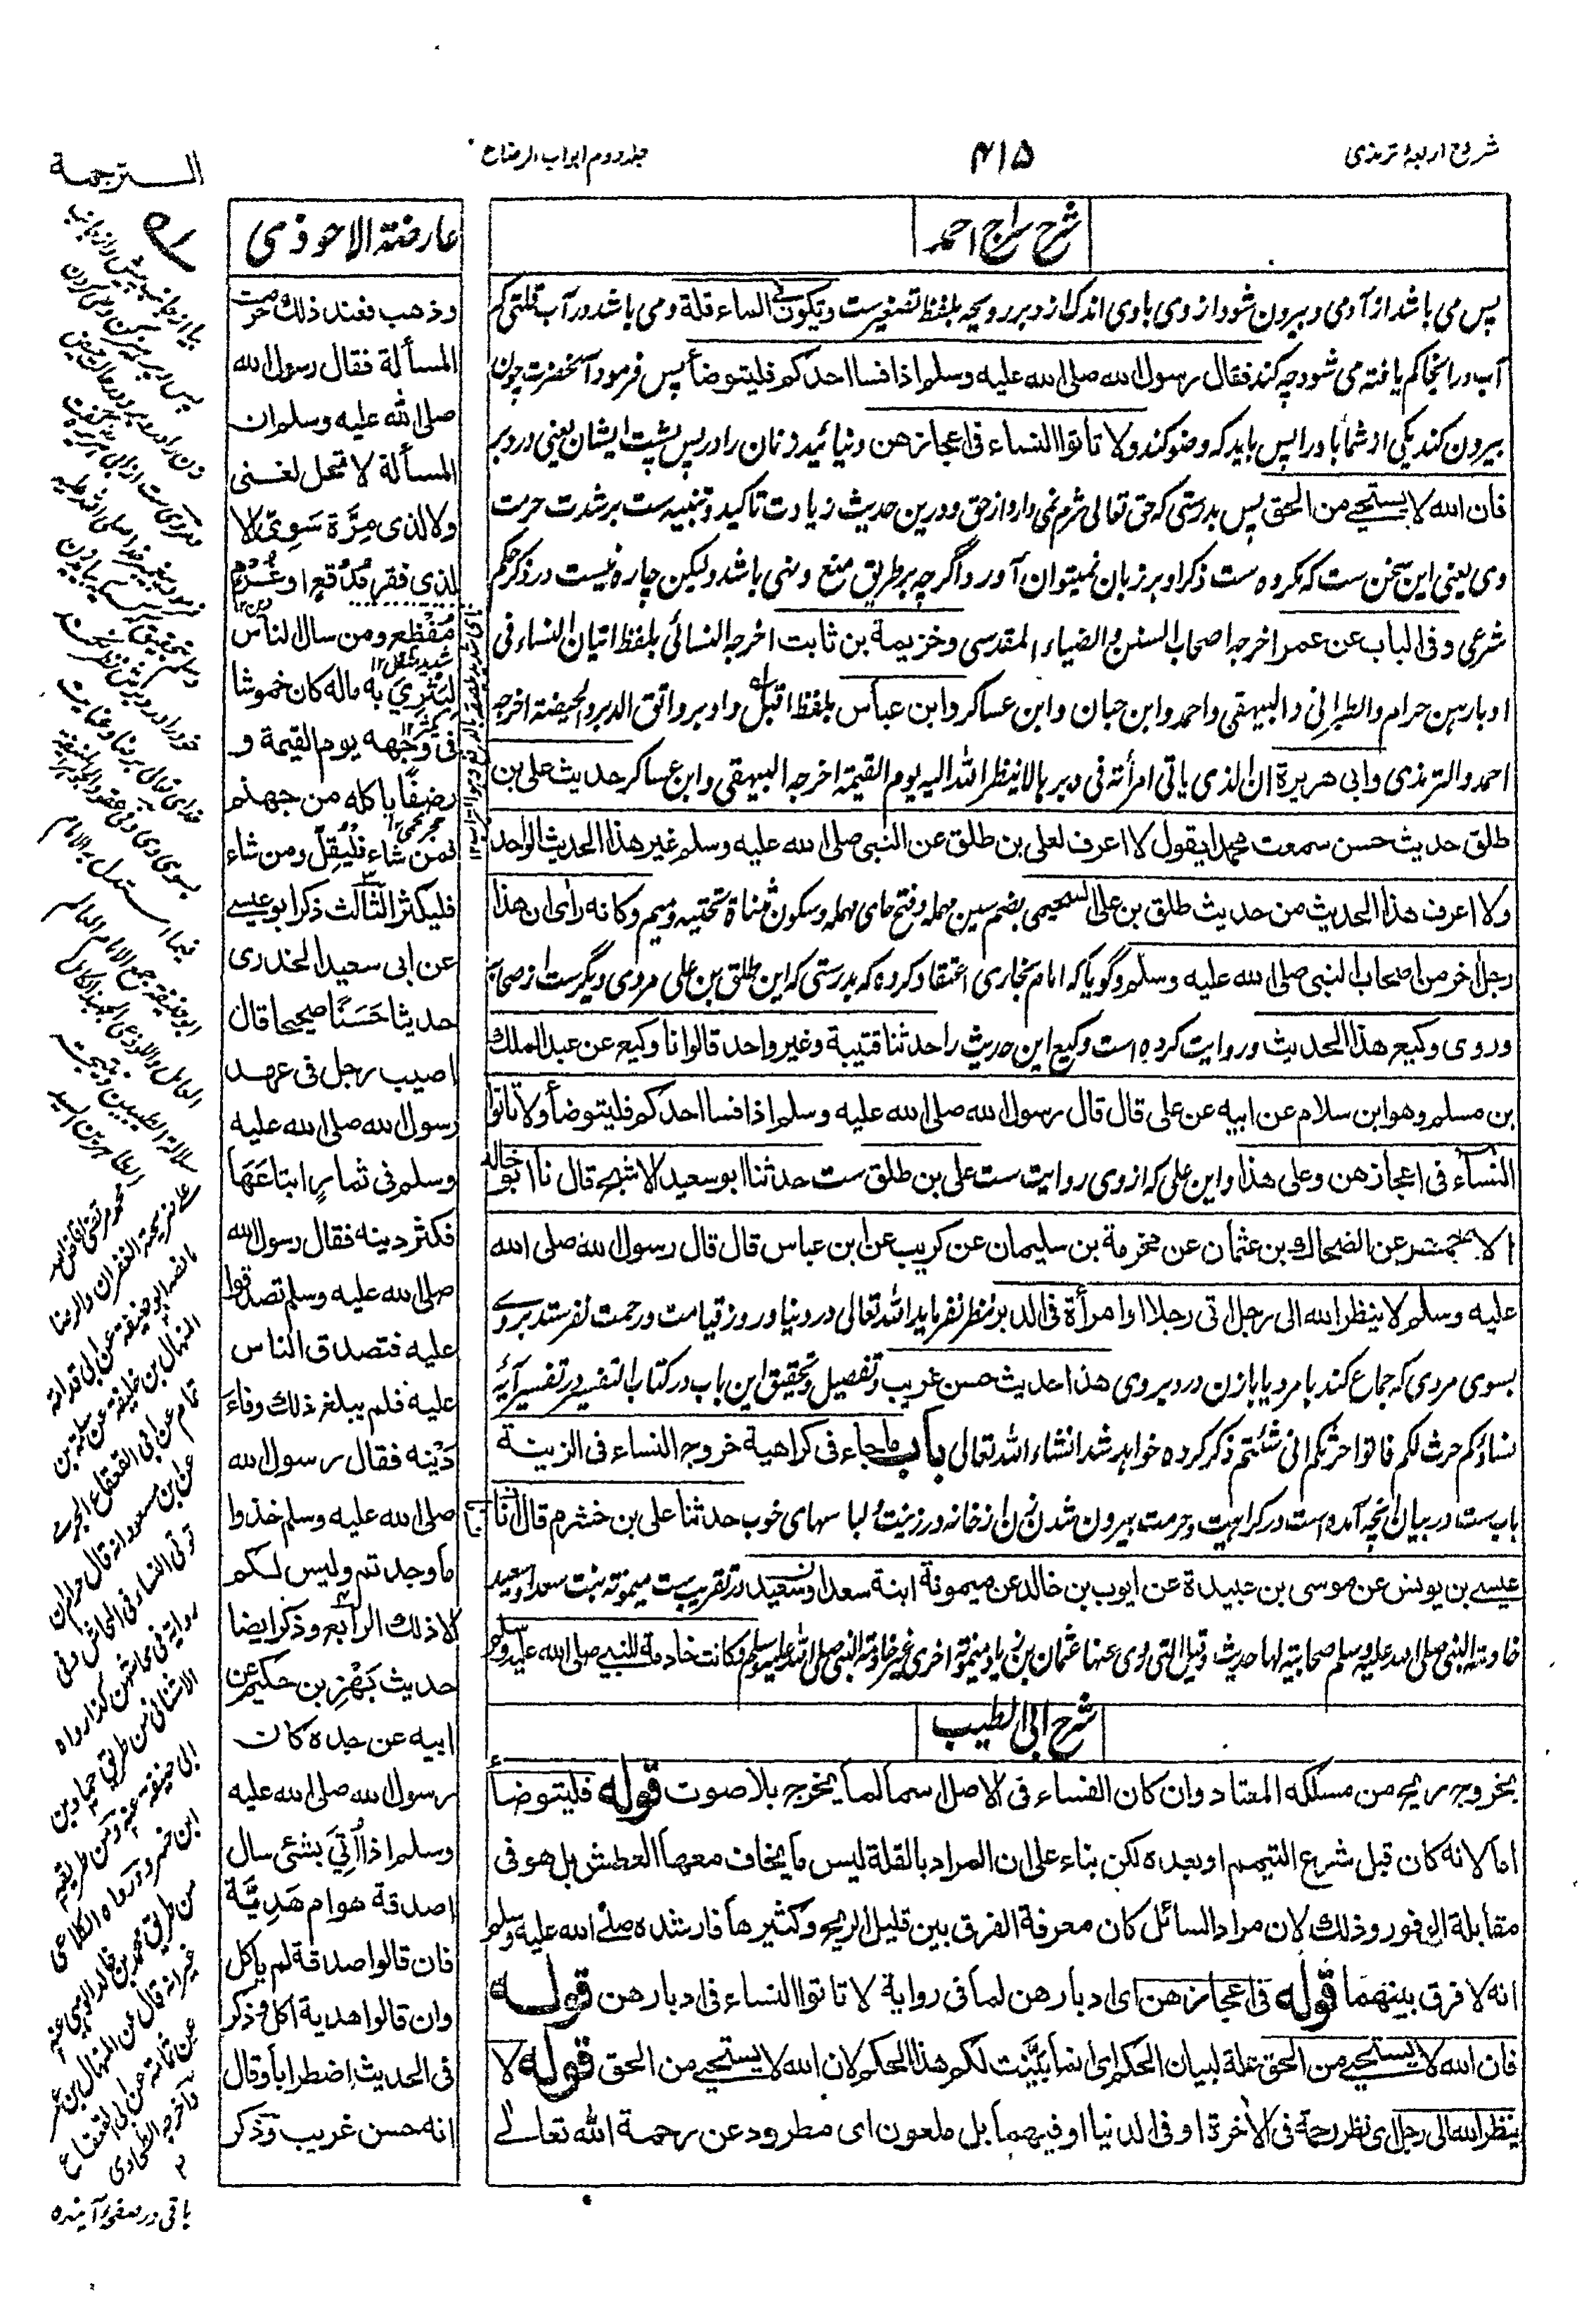 شروح اربعۂ ترمذی
۴۱۵
جلد دوم ابواب الرضاع
شرح سراج احمد
پس می باشد از آدمی و بیرون شود از وی باوی اندک از دبر رویحه بلفظ تصغیرست ویکون فی الماء قلة و می باشد در آب قلتی کم
آب در اینجا کم یافته می شود چه کند فقال رسول الله صلی الله علیه وسلم اذا فسا احدکم فلیتوضأ پس فرمود آنحضرت چون
بیرون کند یکی از شما باد را پس باید که وضو کند ولا تاتوا النساء فی اعجازهن و نیائید زنان را در پس پشت ایشان یعنی در دبر
فان الله لا یستحیی من الحق پس بدرستی که حق تعالی شرم نمی دارد از حق و درین حدیث زیادت تاکید و تنبیه ست بر شدت حرمت
وی یعنی این سخن ست که مکروه ست ذکر او بر زبان نمیتوان آورد اگرچه بر طریق منع و نهی باشد ولیکن چاره نیست در ذکر حکم
شرعی وفی الباب عن عمر اخرجه اصحاب السنن والضیاء المقدسی وخزیمة بن ثابت اخرجه النسائی بلفظ اتیان النساء فی
ادبارهن حرام والطبرانی والبیهقی واحمد وابن حبان وابن عساکر وابن عباس بلفظ اقبل وادبر واتق الدبر والحیضة اخرجه
احمد والترمذی وابی هریرة ان الذی یاتی امرأته فی دبرها لا ینظر الله الیه یوم القیمة اخرجه البیهقی وابن عساکر حدیث علی بن
طلق حدیث حسن سمعت محمدا یقول لا اعرف لعلی بن طلق عن النبی صلی الله علیه وسلم غیر هذا الحدیث الواحد
ولا اعرف هذا الحدیث من حدیث طلق بن علی السحیمی بضم سین مهمله وفتح حای مهمله وسکون مثناة تحتیه ومیم وکانه رای ان هذا
رجل اخر من اصحاب النبی صلی الله علیه وسلم وگویا که امام بخاری اعتقاد کرده که بدرستی که این طلق بن علی مردی دیگر ست از صحابه
وروی وکیع هذا الحدیث وروایت کرده است وکیع این حدیث را حدثنا قتیبة وغیر واحد قالوا نا وکیع عن عبد الملک
بن مسلم وهو ابن سلام عن ابیه عن علی قال قال رسول الله صلی الله علیه وسلم اذا فسا احدکم فلیتوضأ ولا تاتوا
النساء فی اعجازهن وعلی هذا واین علی که از وی روایت ست علی بن طلق ست حدثنا ابو سعید الاشج قال نا ابو خالد
الاحمر عن الضحاک بن عثمان عن مخرمة بن سلیمان عن کریب عن ابن عباس قال قال رسول الله صلی الله
علیه وسلم لا ینظر الله الی رجل اتی رجلا او امرأة فی الدبر نظر نفرماید الله تعالی در دنیا و روز قیامت و رحمت نفرستد بروی
بسوی مردی که جماع کند بامرد یا بازن در دبر وی هذا حدیث حسن غریب وتفصیل وتحقیق این باب در کتاب التفسیر در تفسیر آیۂ
نساؤکم حرث لکم فاتوا حرثکم انی شئتم ذکر کرده خواهد شد انشاء الله تعالی باب ما جاء فی کراهیة خروج النساء فی الزینة
باب ست در بیان آنچه آمده است در کراهیت وحرمت بیرون شدن زنان از خانه در زینت و لباسهای خوب حدثنا علی بن خشرم قال انا
عیسی بن یونس عن موسی بن عبیدة عن ایوب بن خالد عن میمونة ابنة سعد او سعید در تقریب ست میمونه بنت سعد او سعید
خادمة النبی صلی الله علیه وسلم صحابیة لها حدیث وقیل التی روی عنها عثمان بن زیاد میمونة اخری غیر خادمة النبی صلی الله علیه وسلم وکانت خادمة للنبی صلی الله علیه وسلم
شرح ابی الطیب
بخروج ریح من مسلکه المعتاد وان کان الفساء فی الاصل اسما لما یخرج بلا صوت قوله فلیتوضأ
اما لانه کان قبل شرع التیمم او بعده لکن بناء علی ان المراد بالقلة لیس ما یخاف معها العطش بل هو فی
مقابلة الوفور وذلک لان مراد السائل کان معرفة الفرق بین قلیل الریح وکثیرها فارشده صلی الله علیه وسلم
انه لا فرق بینهما قوله فی اعجازهن ای ادبارهن لما فی روایة لا تاتوا النساء فی ادبارهن قوله
فان الله لا یستحیی من الحق علة لبیان الحکم ای انما بینت لکم هذا الحکم لان الله لا یستحیی من الحق قوله لا
ینظر الله الی رجل ای نظر رحمة فی الاخرة او فی الدنیا او فیهما بل ملعون ای مطرود عن رحمة الله تعالی
عارضة الاحوذی
وذهب فعند ذلک حرمت
المسألة فقال رسول الله
صلی الله علیه وسلم ان
المسألة لا تحل لغنی
ولا لذی مِرَّة سَوِیّ الا
لذی فقر مُدْقع او غُرْم
مُفْظع ومن سال الناس
لِیَثْرِیَ به ماله کان خموشا
فی وجهه یوم القیمة و
رضفًا یاکله من جهنم
فمن شاء فلیُقِلَّ ومن شاء
فلیکثر الثالث ذکر ابو عیسے
عن ابی سعید الخدری
حدیثا حَسَنًا صحیحا قال
اصیب رجل فی عهد
رسول الله صلی الله علیه
وسلم فی ثمار ابتاعَهَا
فکثر دینه فقال رسول الله
صلی الله علیه وسلم تصدقوا
علیه فتصدق الناس
علیه فلم یبلغ ذلک وفاءَ
دَیْنه فقال رسول الله
صلی الله علیه وسلم خذوا
ما وجدتم ولیس لکم
الا ذلک الرابع وذکر ایضا
حدیث بَهْزِ بن حکیم عن
ابیه عن جده کان
رسول الله صلی الله علیه
وسلم اذا اُتِیَ بشئی سال
اصدقة هو ام هَدِیَّة
فان قالوا صدقة لم یاکل
وان قالوا هدیة اکل وذکر
فی الحدیث اضطرابا وقال
انه حسن غریب وذکر
الترجمة
محمد مرتضی
عن ابن مسعود انه قال حرام ان
توتی النساء فی المحاش
واخرجه الطحاوی
۱۲
باقی در صفحۂ آینده